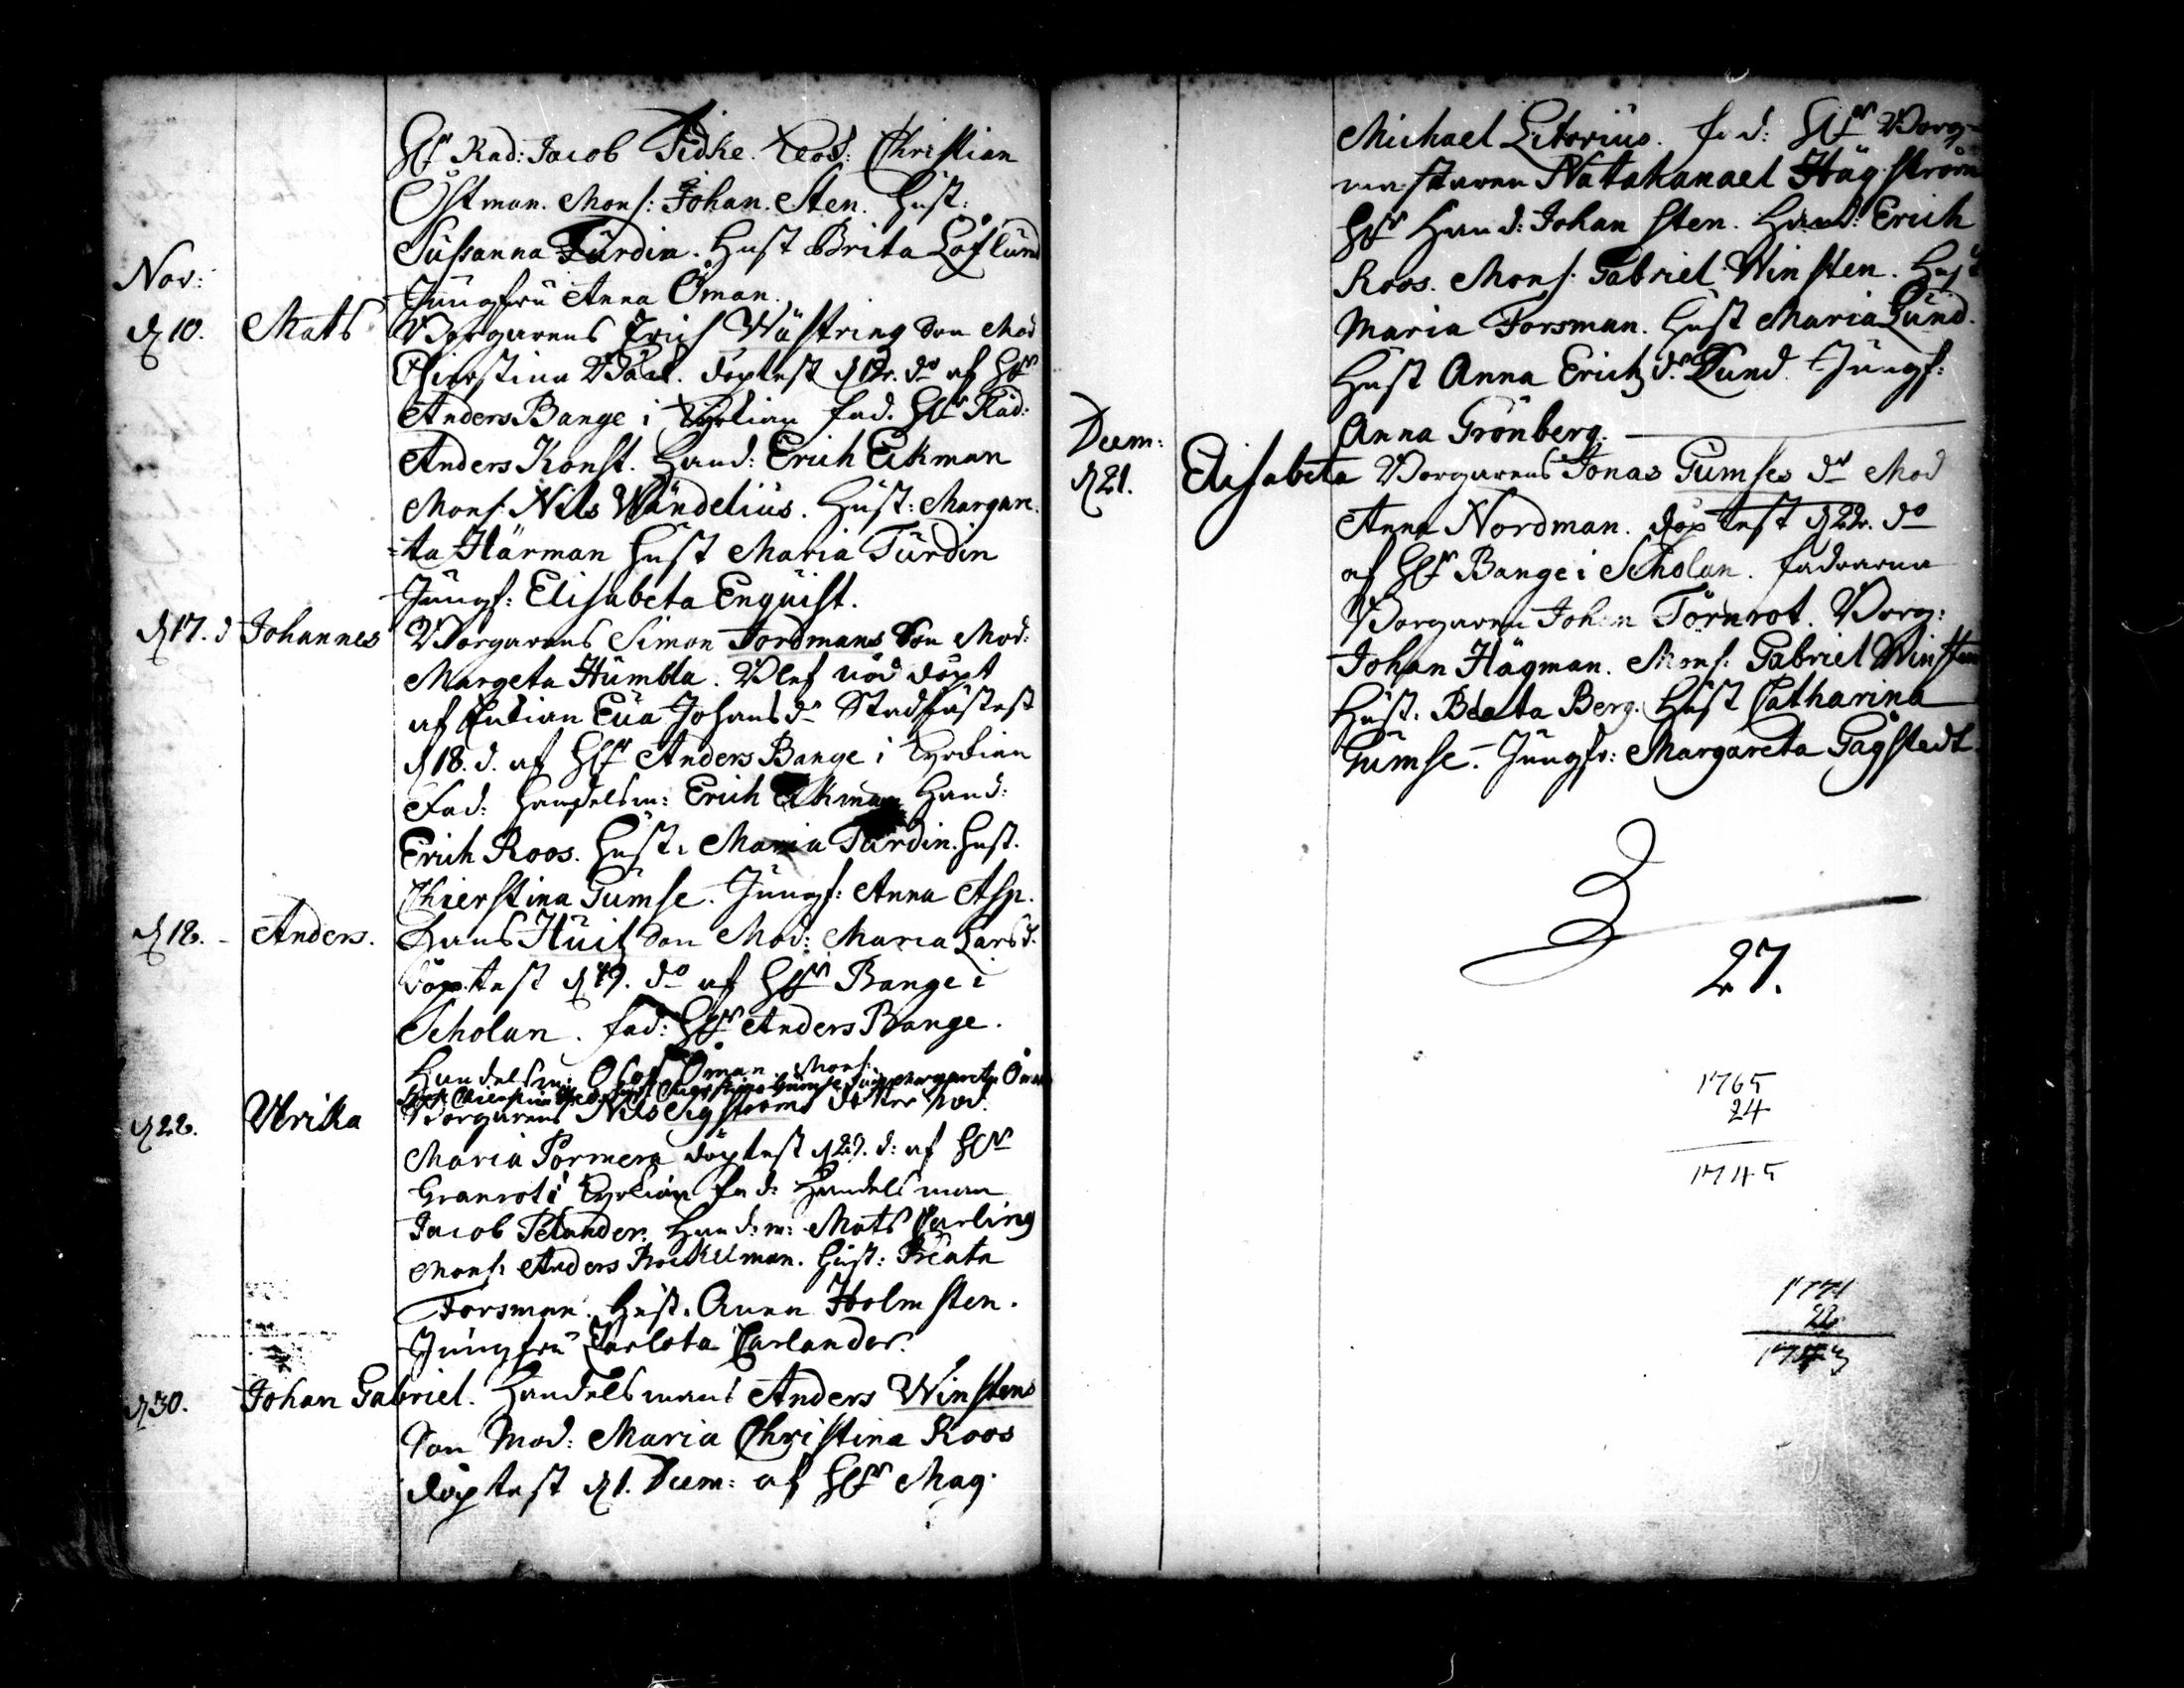 H:r Råd: Jacob Tidke. Christian
Östman. Mons: Johan Sten. Hust:
Sussanna Turdin. Hust Brita Löflund
Jungfru Anna Öman.
Nov:
d 10. Mats Borgarens Erich Wästring Son Mod
Chierstina döptest d 12. d:o af H:r
Anders Bange i Kyrkian fad. H:r Råd:
Anders Konst. Hand: Erich Eckman
Mons: Nils Wändelius. Hust: Margare-
=ta Härman Hust Maria Turdin
Jungf: Elisabeta Enquist.
d 17. d Johannes Borgarens Simon Fordmans Son Mod:
Margeta Humbla. Blef nöd döpt
af Eua Johans d:r Stadfästest
d 18. d. af H:r Anders Bange i Kyrkian
Fad: Handelsm: Erich Ekman Hand:
Erich Roos. Hust: Maria Turdin. Hust.
Chierstina Gumse. Jungf: Anna Asp.
d 18. - Anders. Hans Huit Son Mod: Maria Lars d.
döptest d 19. d:o af H:r Bange i
Scholan. fad: H:r Anders Bange.
Handelsm: Olof Öman. Mons:
Hust Chierstina Hust Chierstina Gumse Jung Margareta Öman
d 22. Ulrika Borgarens Nils dotter Mod.
Maria Pormera döptest d 23. d: af H:r
Granrot i Kyrkian fad: Handelsman
Jacob Pelander. Hand:m: Mats Carling
Mons: Anders Hust: Beata
Forsman. Hust. Anna Holmsten.
Jungfru Carlota Carlander.
d 30. Johan Gabriel. Handelsmans Anders Winstens
Son Mod: Maria Christina Roos
döptest d 1. Decem: af H:r Mag.
Michael Litorius. fad: H:r Borg-
mästaren Natahanael Hägström
H:r Hand: Johan Sten. Hand: Erich
Roos. Mons: Gabriel Winsten. Hust
Maria Forsman. Hust Maria Lund.
Hust Anna Erichs d:r Lund. Jungf:
Anna Grönberg.
Decem:
d 21. Elisabeta Borgarens Jonas Gumses d:r Mod
Anna Nordman. döptest d 22. d:o
af H:r Bange i Scholan. fadrarna
Borgaren Johan Törnrot. Borg:
Johan Hägman. Mons: Gabriel Winsten
Hust. Beata Berg. Hust Catharina
Gumse. Jungfr: Margareta Gagstedt.
27.
1765
24
1745
1771